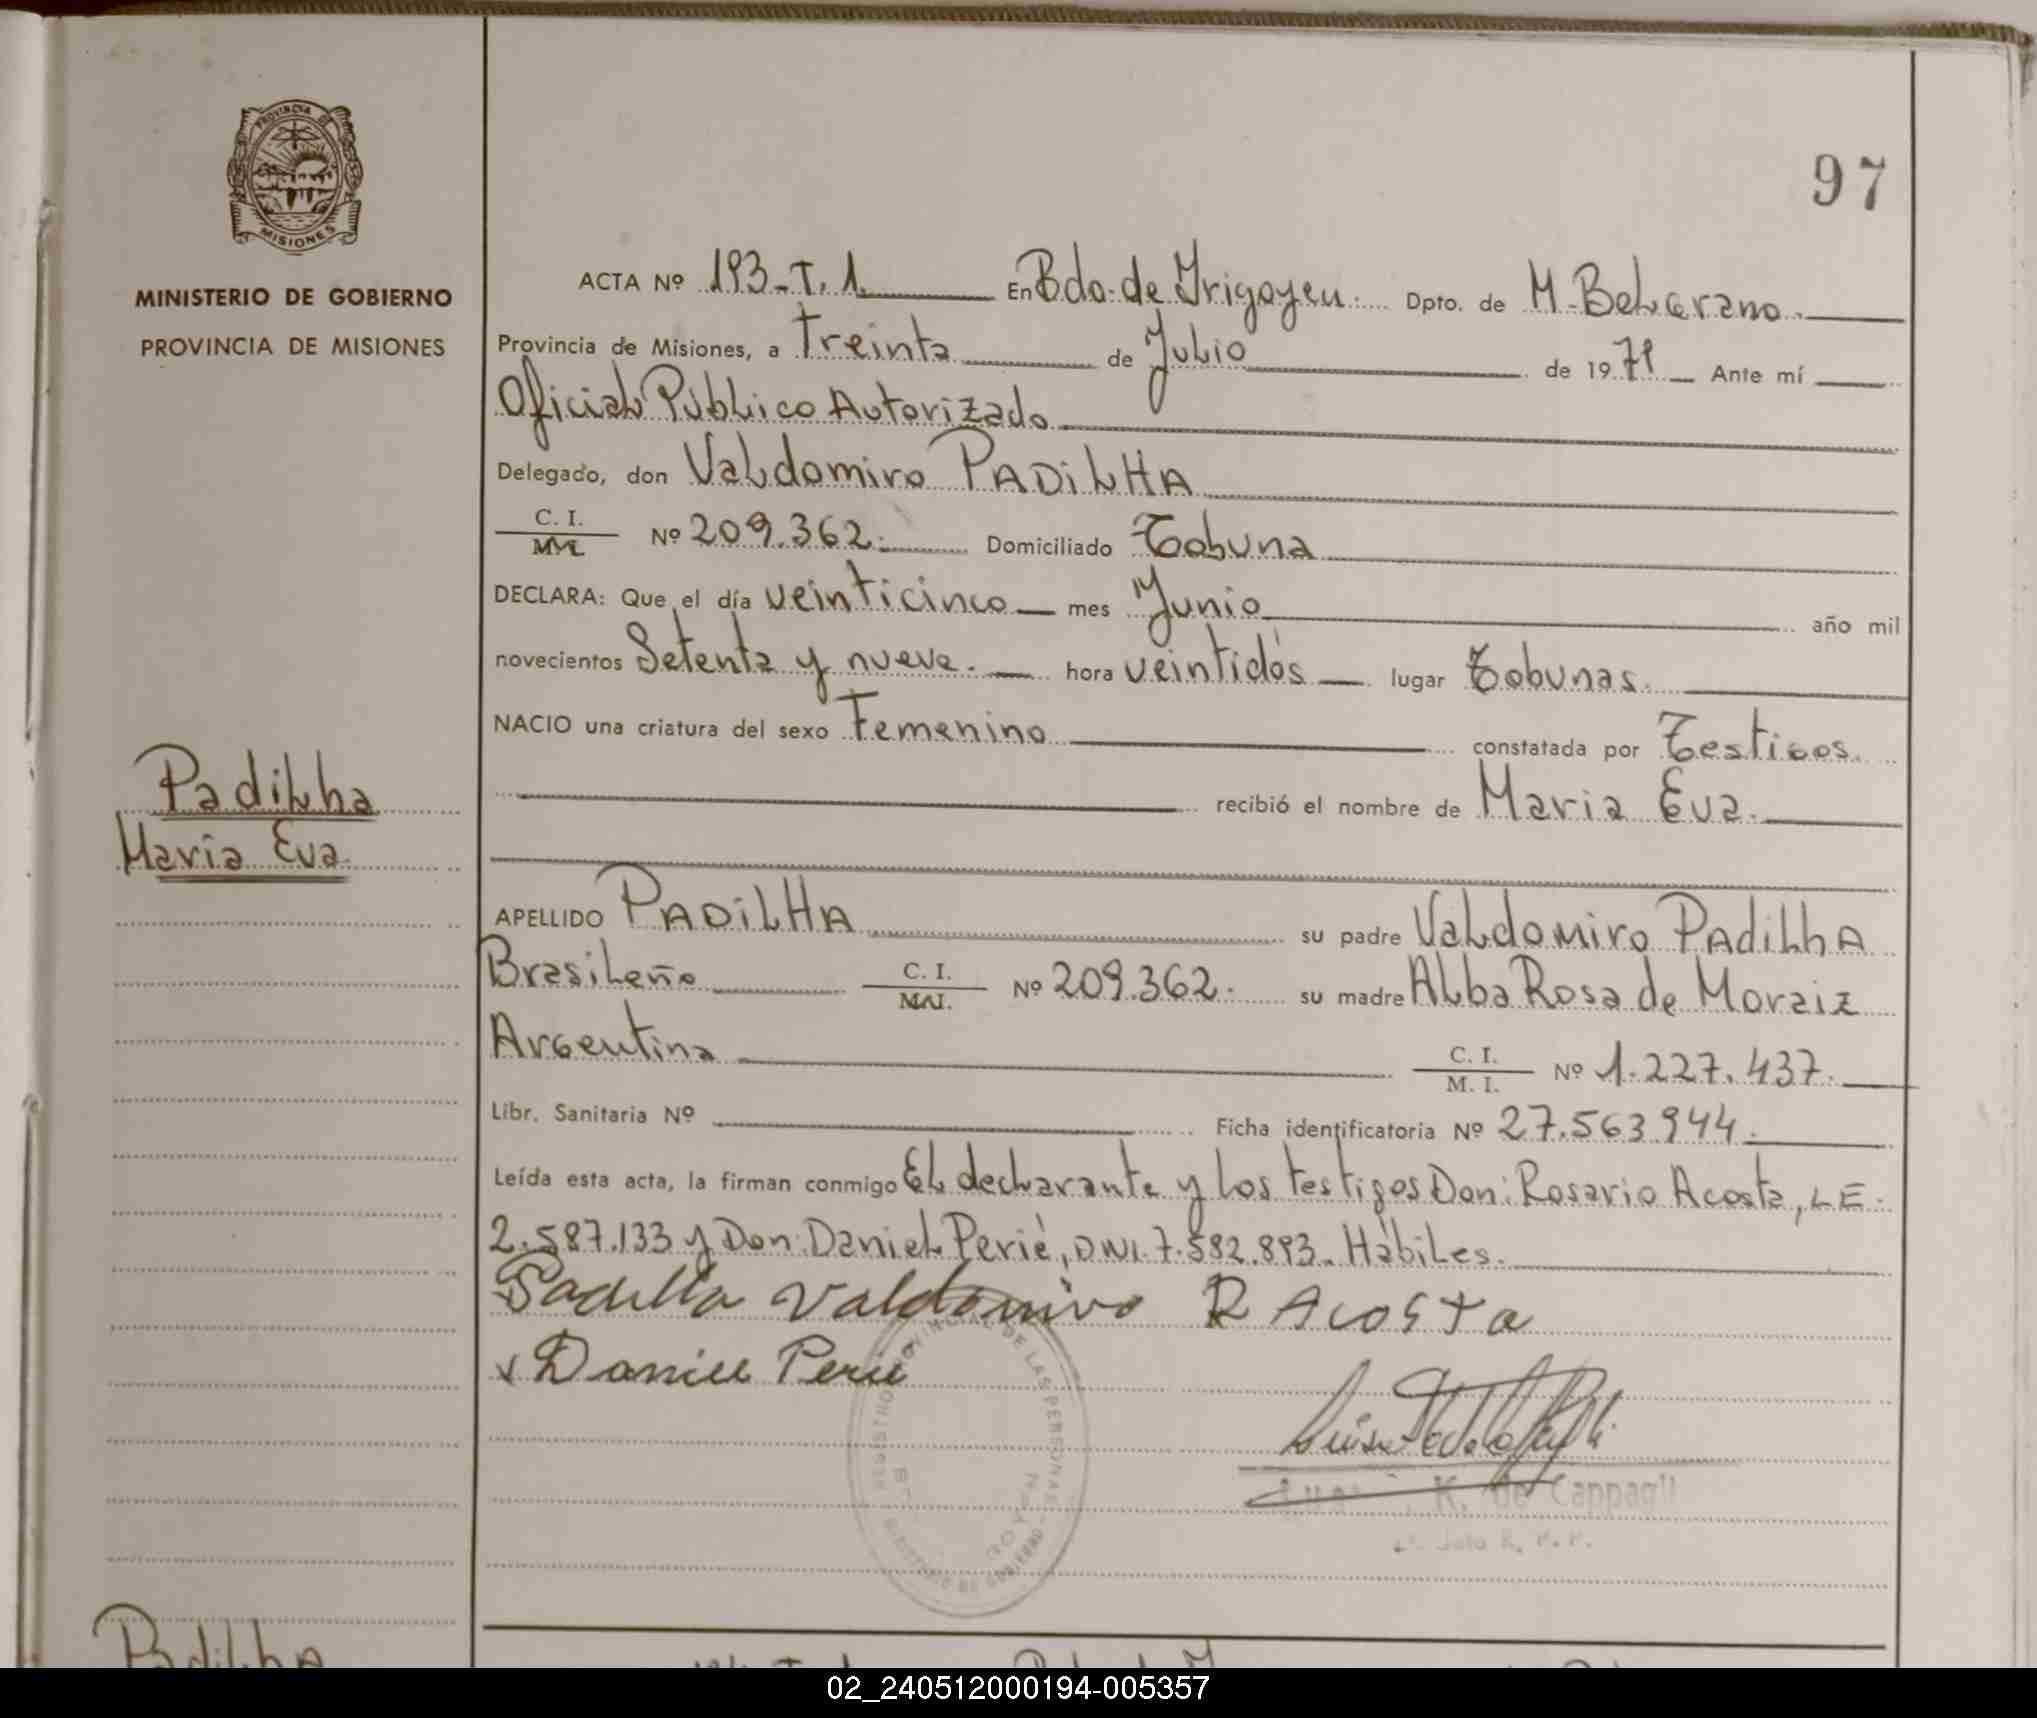 97
PROVINCIA DE
MISIONES
MINISTERIO DE GOBIERNO
PROVINCIA DE MISIONES
ACTA Nº 193-T.1. En Bdo. de Yrigoyen. Dpto. de M. Belgrano.
Provincia de Misiones, a Treinta de Julio de 1979 Ante mí
Oficial Público Autorizado
Delegado, don Valdomiro PADiLHA
C. I.
Nº 209.362. Domiciliado Tobuna
DECLARA: Que el día veinticinco mes Junio año mil
novecientos Setenta y nueve. hora veintidós lugar Tobunas.
NACIO una criatura del sexo Femenino constatada por Testigos.
Padilha
recibió el nombre de Maria Eva.
Maria Eva
APELLIDO PADiLHA su padre Valdomiro PAdilhA
Brasileño C. I. M.I. Nº 209.362. su madre Alba Rosa de Moraiz
Argentina C. I. M. I. Nº 1.227.437.
Libr. Sanitaria Nº Ficha identificatoria Nº 27.563.944.
Leída esta acta, la firman conmigo El declarante y los testigos Don: Rosario Acosta, LE.
2.587.133 y Don: Daniel Perié, DNI. 7.582.893. Hábiles.
Padilla Valdomiro R Acosta
Daniel Perie
REGISTRO PROVINCIAL DE LAS PERSONAS
K. de Cappagli
Padilha
02_240512000194-005357